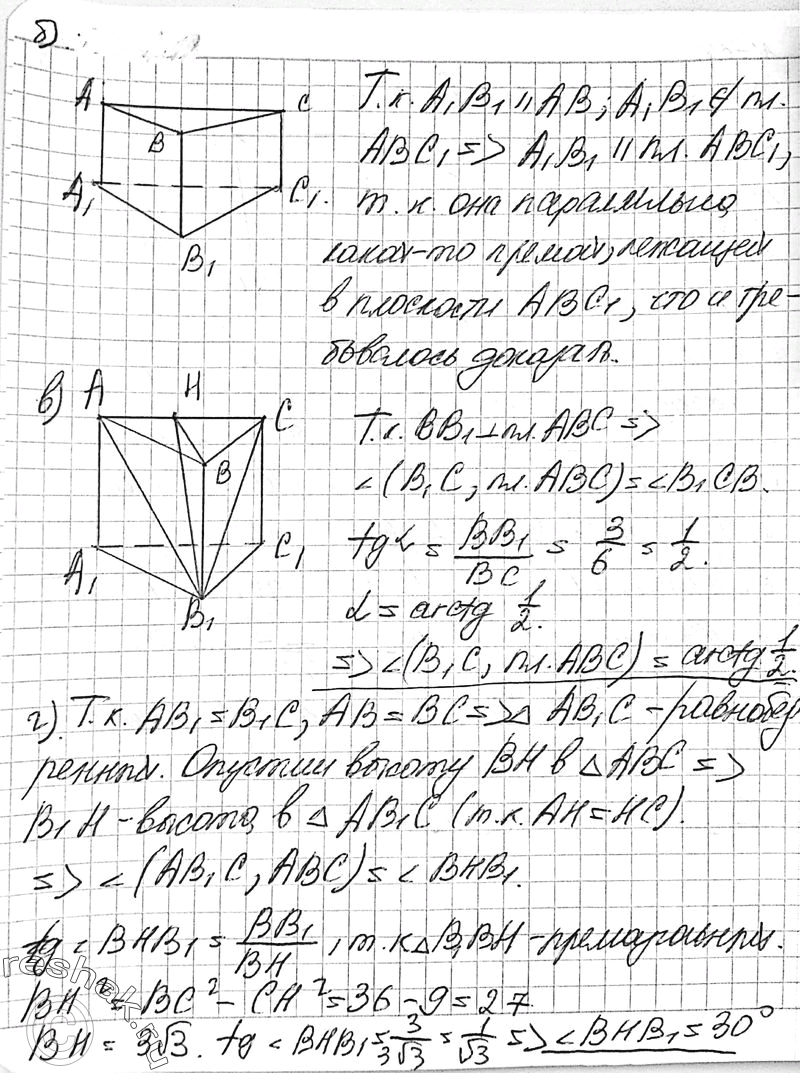 б)
A
C
B
A₁
C₁.
B₁
Т.к. A₁B₁ || AB; A₁B₁ ∉ пл.
ABC₁ => A₁B₁ || пл. ABC₁,
т.к. она параллельна
какой-то прямой, лежащей
в плоскости ABC₁, что и тре-
бывалось доказать.
в)
A
H
C
B
A₁
C₁
B₁
Т.к. BB₁ ⊥ пл. ABC =>
∠(B₁C, пл. ABC) = ∠B₁CB.
tg α = BB₁/BC = 3/6 = 1/2.
α = arctg 1/2.
=> ∠(B₁C, пл. ABC) = arctg 1/2.
г). Т.к. AB₁ = B₁C, AB = BC => △ AB₁C - равнобед
ренный. Опустим высоту BH в △ ABC =>
B₁H - высота в △ AB₁C (т.к. AH = HC).
=> ∠(AB₁C, ABC) = ∠ BHB₁.
tg ∠ BHB₁ = BB₁/BH, т.к △ B₁BH - прямоугольный.
BH² = BC² - CH² = 36 - 9 = 27
BH = 3√3. tg ∠ BHB₁ = 3/3√3 = 1/√3 => ∠BHB₁ = 30°
reshak.ru